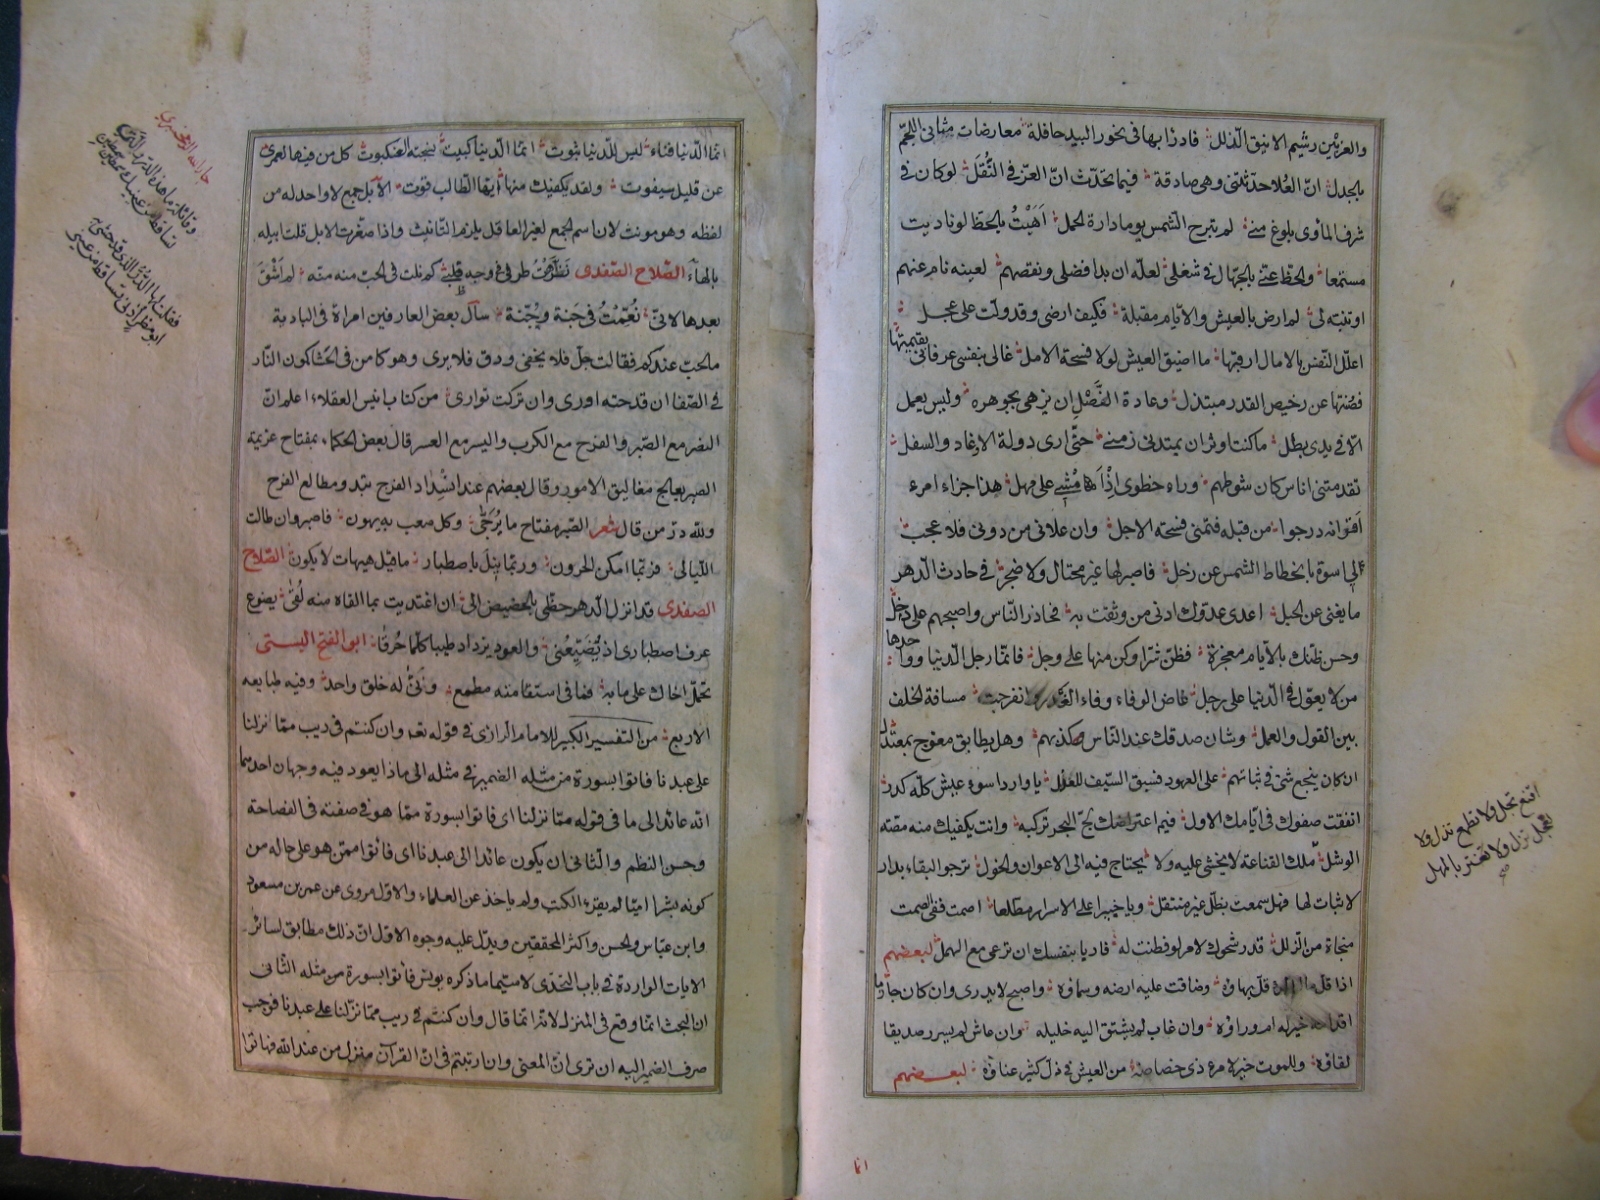 والعزبين رشيم الاينق الذلل فادرا بها فى نحور البيد حافلة معارضات مثانى اللجم
بالجدل ان العلا حدثتنى وهى صادقة فيما تحدث ان العز فى النقل لو كان فى
شرف المأوى بلوغ منى لم تبرح الشمس يوما دارة الحمل اهبت بالحظ لو ناديت
مستمعا والحظ عنى بالجهال فى شغل لعله ان بدا فضلى ونقصهم لعينه نام عنهم
او تنبه لى لم ارض بالعيش والايام مقبلة فكيف ارضى وقد ولت على عجل
اعلل النفس بالامال ارقبها ما اضيق العيش لولا فسحة الامل غالى بنفسى عرفانى بقيمتها
فصنتها عن رخيص القدر مبتذل وعادة الفضل ان يزهى بجوهره وليس يعمل
الا فى يدى بطل ما كنت اوثر ان يمتد بى زمنى حتى ارى دولة الاوغاد والسفل
تقدمتنى اناس كان شوطهم وراء خطوى اذا مشى على مهل هذا جزاء امرء
اقرانه درجوا من قبله فتمنى فسحة الاجل وان علانى من دونى فلا عجب
لى اسوة بانحطاط الشمس عن زحل فاصبر لها غير محتال ولا ضجر فى حادث الدهر
ما يغنى عن الحيل اعدى عدوك ادنى من وثقت به فحاذر الناس واصحبهم على دخل
وحسن ظنك بالايام معجزة فظن شرا وكن منها على وجل فانما رجل الدنيا وواحدها
من لا يعول فى الدنيا على رجل غاض الوفاء وفاء الغدر وانفرجت مسافة الخلف
بين القول والعمل وشان صدقك عند الناس كذبهم وهل يطابق معوج بمعتدل
ان كان ينجع شئ فى ثباتهم على العهود فسبق السيف للعذل يا واردا سوء عيش كله كدر
انفقت صفوك فى ايامك الاول فيم اعتراضك لج البحر تركبه وانت يكفيك منه مصة
الوشل ملك القناعة لا يخشى عليه ولا يحتاج فيه الى الاعوان والخول ترجو البقاء بدار
لا ثبات لها فهل سمعت بظل غير منتقل ويا خبيرا على الاسرار مطلعا اصمت ففى الصمت
منجاة من الزلل قد رشحوك لامر لو فطنت له فاربا بنفسك ان ترعى مع الهمل لبعضهم
اذا قل ماء قل بهاؤه وضاقت عليه ارضه وسماؤه واصبح لا يدرى وان كان حازما
اقدامه خير له ام وراؤه وان غاب لم يشتق اليه خليله وان عاش لم يسرر صديقا
لقاؤه وللموت خير لامرء ذى خصاصة من العيش فى ذل كثير عناؤه لبعضهم
اقنع تجل ولا تطمع تذل ولا
تعجل تزل ولا تغتر بالمهل
صح
انما
انما الدنيا فناء ليس للدنيا ثبوت انما الدنيا كبيت نسجته العنكبوت كل من فيها لعمرى
عن قليل سيفوت ولقد يكفيك منها ايها الطالب قوت الابل جمع لا واحد له من
لفظه وهو مونث لان اسم الجمع لغير العاقل يلزمه التانيث واذا صغرت الابل قلت ابيلة
بالهاء الصلاح الصفدى نزهت طرفى فى وجه ظبى كم نلت فى الحب منه منه لم اشق
بعدها لانى نعمت فى جنة وجنة سأل بعض العارفين امراة فى البادية
ما الحب عندكم فقالت جل فلا يخفى ودق فلا يرى وهو كامن فى الحشا كمون النار
فى الصفا ان قدحته اورى وان تركت توارى من كتاب انيس العقلاء اعلم ان
النصر مع الصبر والفرج مع الكرب واليسر مع العسر قال بعض الحكماء بمفتاح عزيمة
الصبر يعالج مغاليق الامور وقال بعضهم عند انسداد الفرج تبدو مطالع الفرج
ولله در من قال شعر الصبر مفتاح ما يرجى وكل صعب به يهون فاصبر وان طالت
الليالى فربما امكن الحرون وربما نيل باصطبار ما قيل هيهات لا يكون الصلاح
الصفدى قد انزل الدهر حظى بالحضيض الى ان اغتديت بما القاه منه لقى يضوع
عرف اصطبارى اذ يضيعنى والعود يزداد طيبا كلما حرقا ابو الفتح البستى
تحمل اخاك على ما به فما فى استقامته مطمع وانى له خلق واحد وفيه طبايعه
الاربع من التفسير الكبير للامام الرازى فى قوله تعه وان كنتم فى ريب مما نزلنا
على عبدنا فاتوا بسورة من مثله الضمير فى مثله الى ماذا يعود فيه وجهان احدهما
انه عائد الى ما فى قوله مما نزلنا اى فاتوا بسورة مما هو فى صفته فى الفصاحة
وحسن النظم والثانى ان يكون عائدا الى عبدنا اى فاتوا ممن هو على حاله من
كونه بشرا اميا لم يقرء الكتب ولم ياخذ عن العلماء والاول مروى عن عمر بن مسعود
وابن عباس والحسن واكثر المحققين ويدل عليه وجوه الاول ان ذلك مطابق لسائر
الايات الواردة فى باب التحدى لا سيما ما ذكره يونس فاتوا بسورة من مثله الثانى
ان البحث انما وقع فى المنزل لانه انما قال وان كنتم فى ريب مما نزلنا على عبدنا فوجب
صرف الضمير اليه ان ترى ان المعنى وان ارتبتم فى ان القرآن منزل من عند الله فهاتوا
جار الله الزمخشرى
وقائلة ما هذه الدرر التى
تساقط من عينيك سمطين سمطين
فقلت لها الدر الذى قد حشى به
ابو مضر اذنى تساقط من عينى